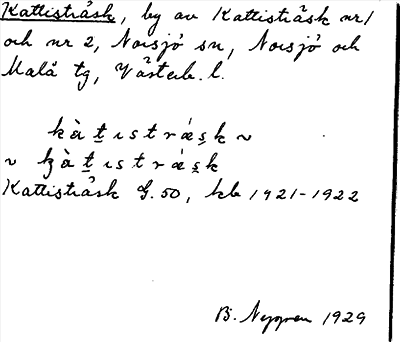 Kattisträsk, by av Kattisträsk nr 1
och nr 2, Norsjö sn, Norsjö och
Malå tg, Västerb. l.
kàt̲ıstrǽs̨k ~
~ k̨àt̲ıstrǽs̨k
Kattisträsk G. 50, kb 1921-1922
1929